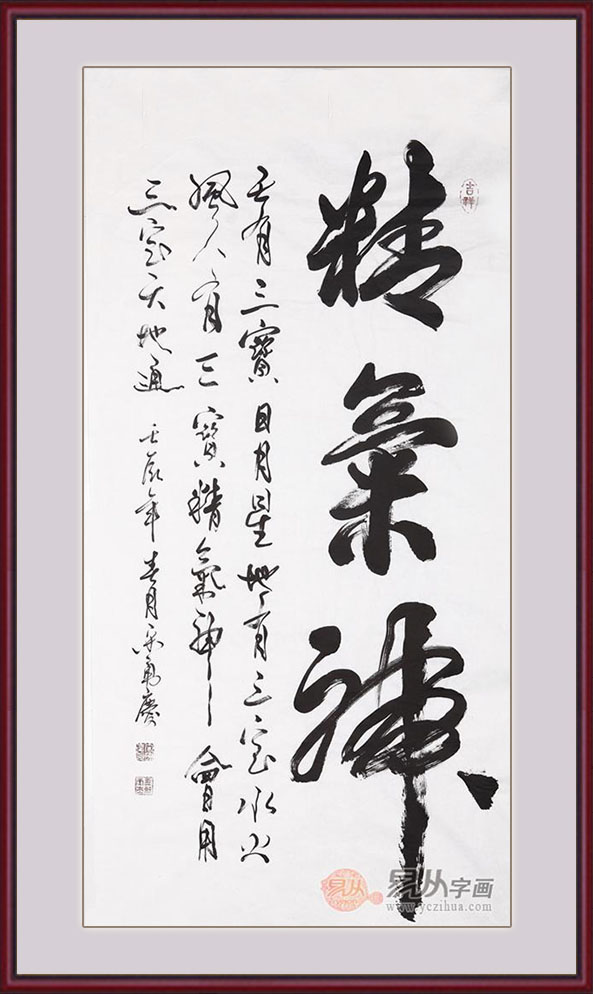 吉祥
精氣神
天有三寶日月星地有三宝水火
風人有三寶精氣神會用
三宝天地通 壬辰年春月
易从
易从字画
www.yczihua.com